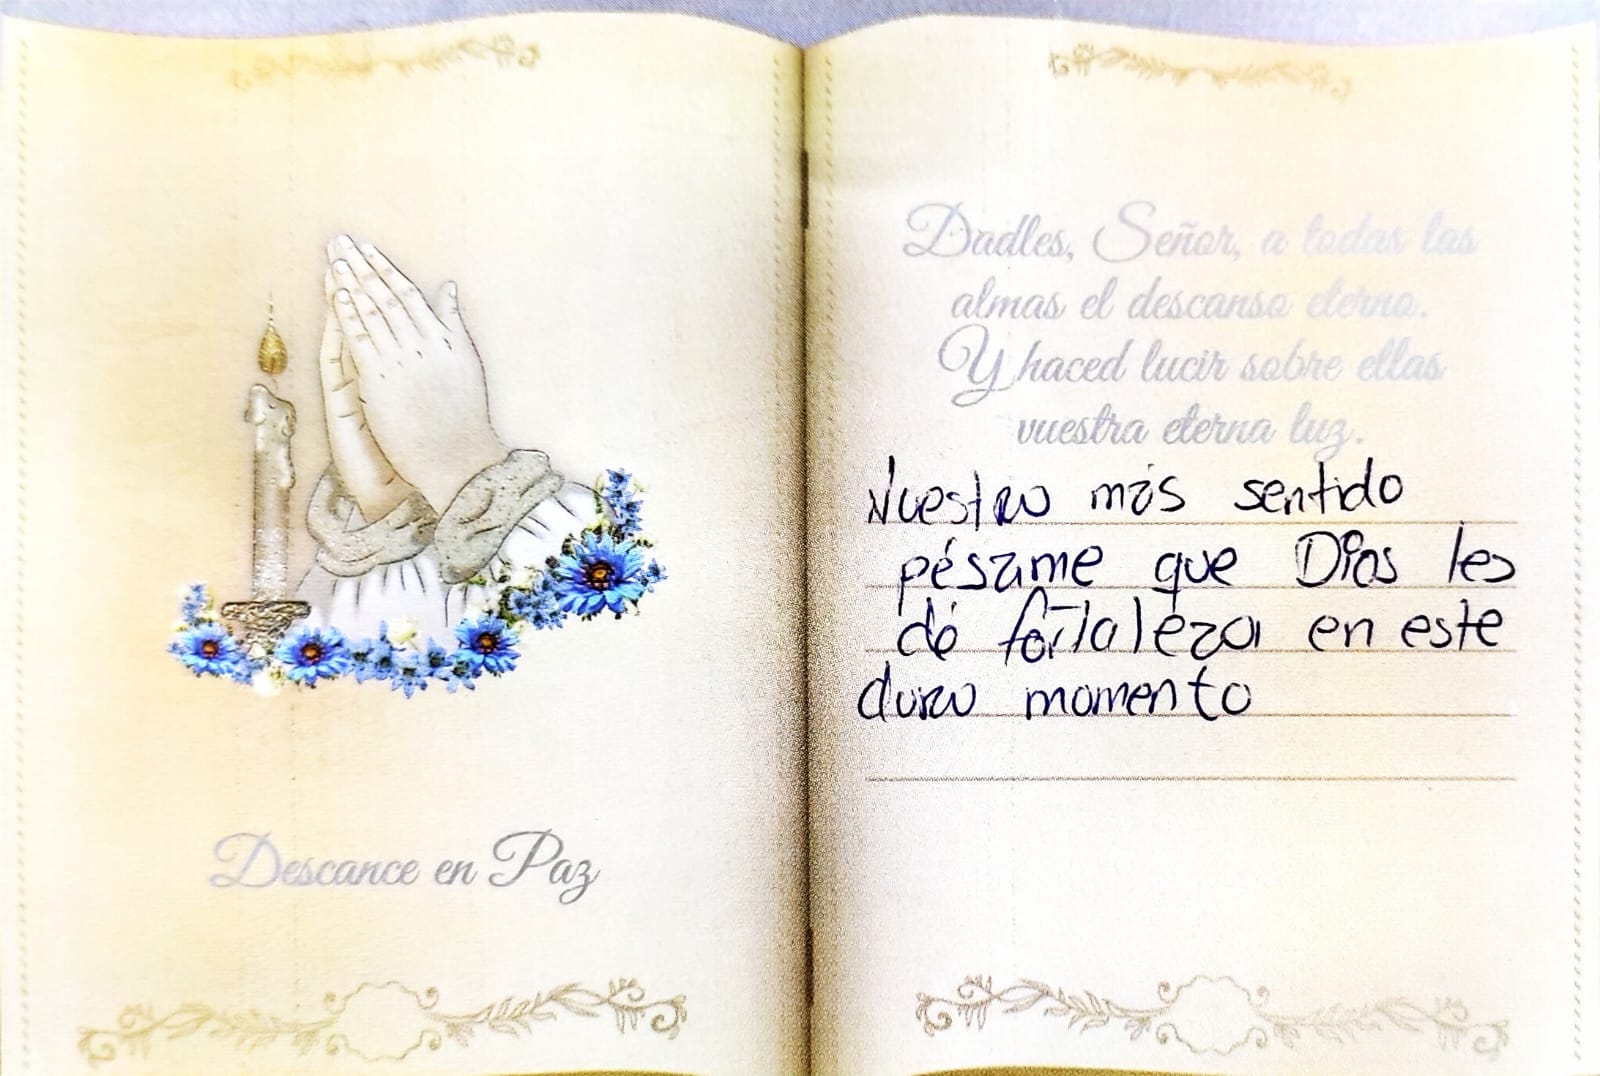 Descance en Paz
Dadles, Señor, a todas las
almas el descanso eterno.
Y haced lucir sobre ellas
vuestra eterna luz.
Nuestro más sentido
pésame que Dios les
dé fortaleza en este
duro momento